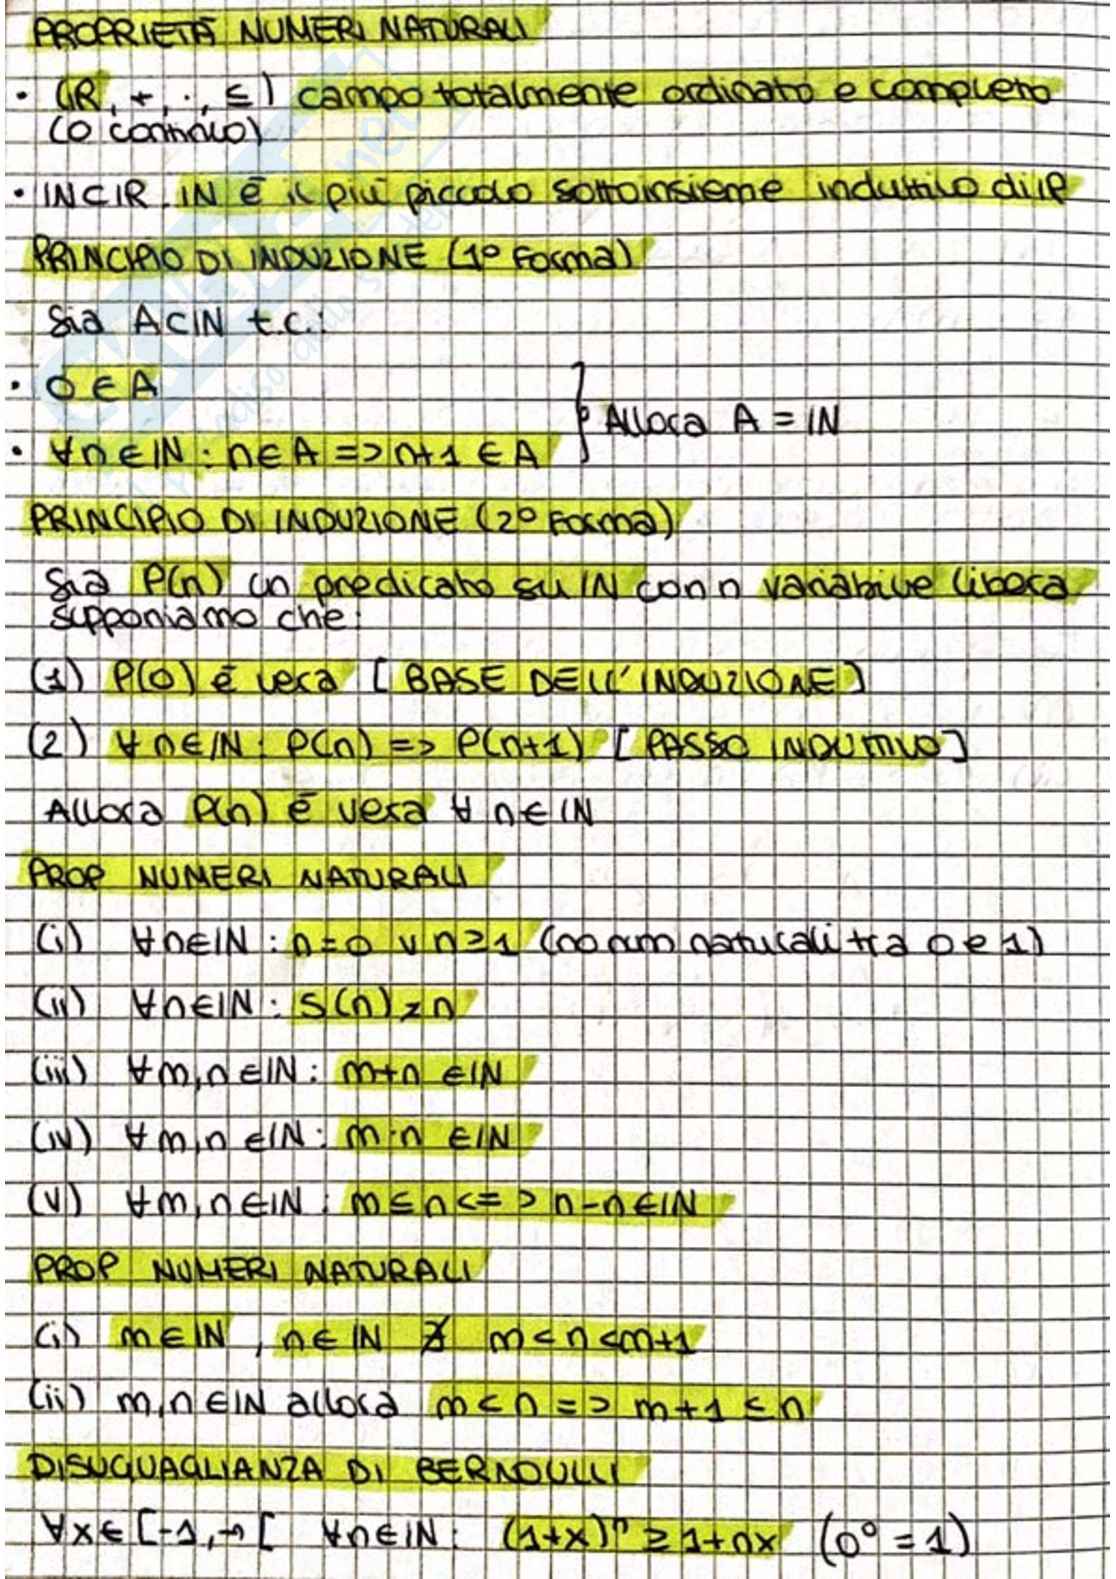 PROPRIETÀ NUMERI NATURALI
• (ℝ, +, ·, ≤) campo totalmente ordinato e completo
(o continuo)
• ℕ⊂ℝ. ℕ è il più piccolo sottoinsieme induttivo di ℝ
PRINCIPIO DI INDUZIONE (1º Forma)
Sia A⊂ℕ t.c.:
• 0 ∈ A
• ∀n∈ℕ : n∈A => n+1 ∈ A } Allora A = ℕ
PRINCIPIO DI INDUZIONE (2º Forma)
Sia P(n) un predicato su ℕ con n variabile libera
supponiamo che:
(1) P(0) è vera [BASE DELL'INDUZIONE]
(2) ∀n∈ℕ: P(n) => P(n+1) [PASSO INDUTTIVO]
Allora P(n) è vera ∀ n∈ℕ
PROP NUMERI NATURALI
(i) ∀n∈ℕ : n=0 ∨ n≥1 (no num naturali tra 0 e 1)
(ii) ∀n∈ℕ : S(n)≠n
(iii) ∀m,n∈ℕ : m+n ∈ℕ
(iv) ∀m,n ∈ℕ : m·n ∈ℕ
(v) ∀m,n∈ℕ : m≤n <=> n-n∈ℕ
PROP NUMERI NATURALI
(i) m∈ℕ, n∈ℕ ∄ m<n<m+1
(ii) m,n∈ℕ allora m<n => m+1 ≤ n
DISUGUAGLIANZA DI BERNOULLI
∀x∈[-1,→[ ∀n∈ℕ: (1+x)ⁿ ≥ 1+nx (0⁰ = 1)